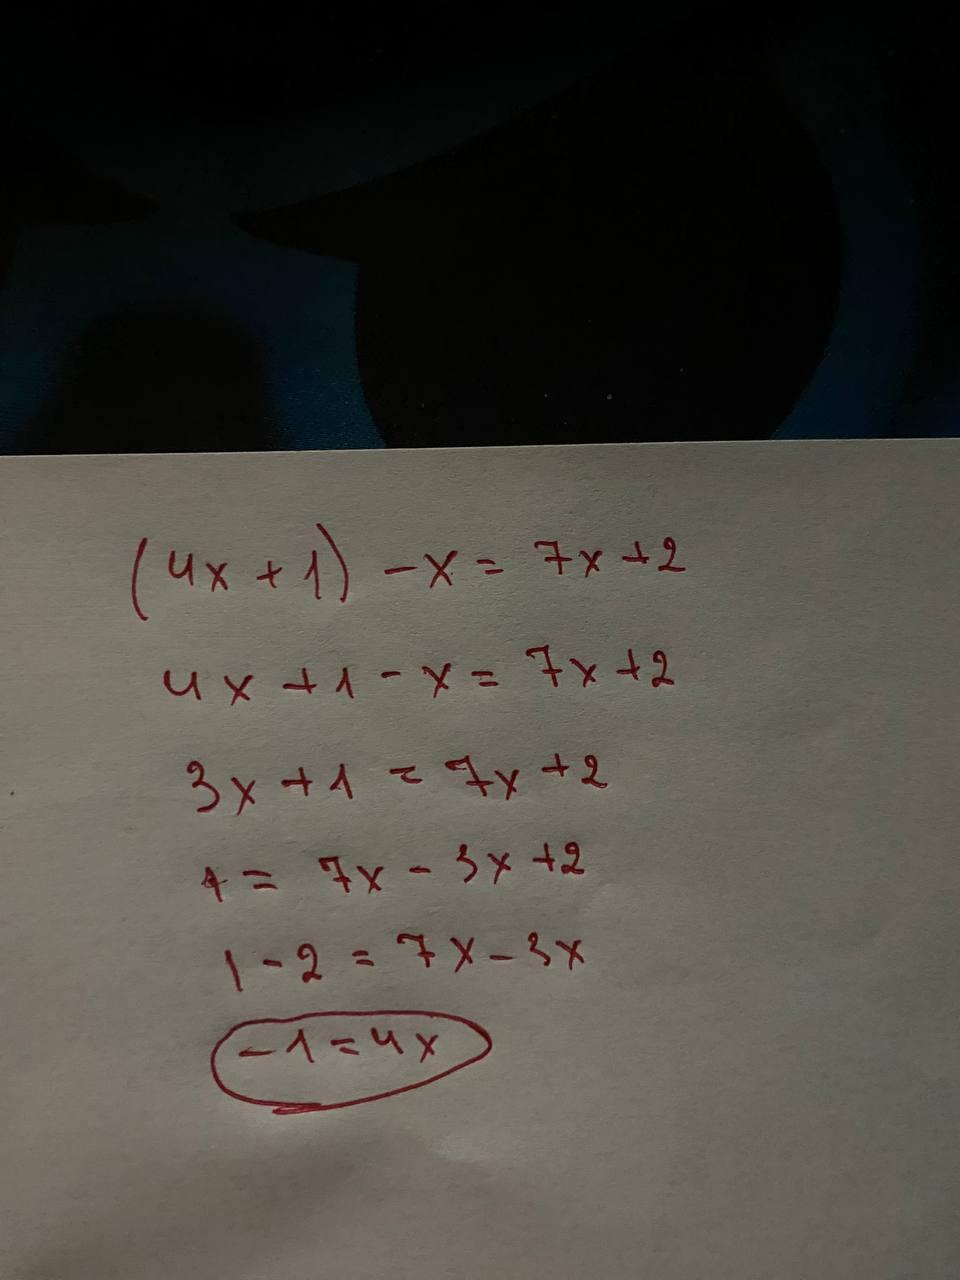 (4x + 1) - x = 7x + 2
4x + 1 - x = 7x + 2
3x + 1 = 7x + 2
1 = 7x - 3x + 2
1 - 2 = 7x - 3x
-1 = 4x